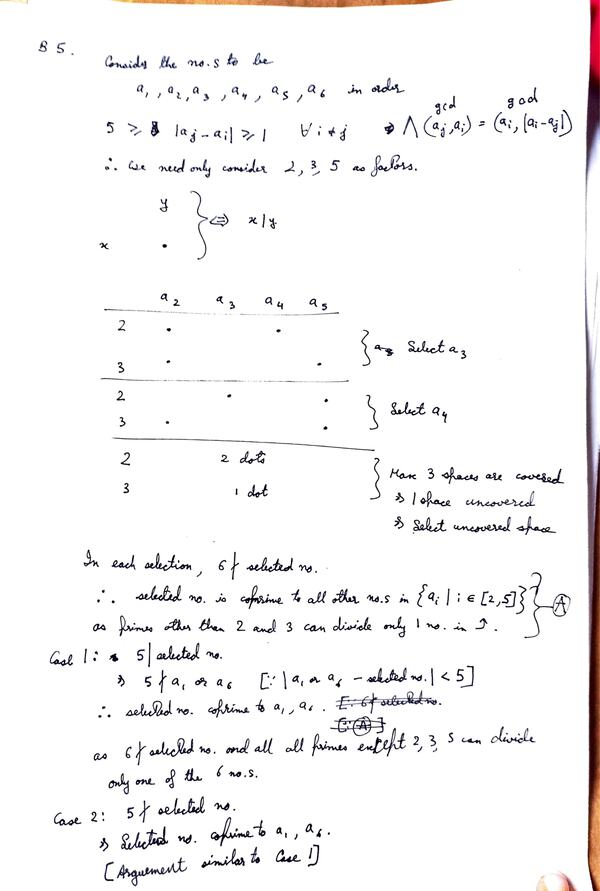 B 5.
Consider the no.s to be
a₁, a₂, a₃, a₄, a₅, a₆ in order
5 ≥ |aj - ai| ≥ 1 ∀ i ≠ j ⇒ ∧ gcd (aj, ai) = gcd (ai, |ai - aj|)
∴ We need only consider 2, 3, 5 as factors.
y
} ⇔ x|y
x •
a₂ a₃ a₄ a₅
2 • •
} Select a₃
3 • •
2 • •
} Select a₄
3 • •
2 2 dots
} Max 3 spaces are covered
3 1 dot
⇒ 1 space uncovered
⇒ Select uncovered space
In each selection, 6 ∤ selected no.
∴ selected no. is coprime to all other no.s in {ai | i ∈ [2,5]} } Ⓐ
as primes other than 2 and 3 can divide only 1 no. in ↑.
Case 1: 5 | selected no.
⇒ 5 ∤ a₁ or a₆ [∵ |a₁ or a₆ - selected no.| < 5]
∴ selected no. coprime to a₁, a₆. [∵ 6 ∤ selected no.
[∵ Ⓐ]
as 6 ∤ selected no. and all all primes except 2, 3, 5 can divide
only one of the 6 no.s.
Case 2: 5 ∤ selected no.
⇒ Selected no. coprime to a₁, a₆.
[Arguement similar to Case 1]